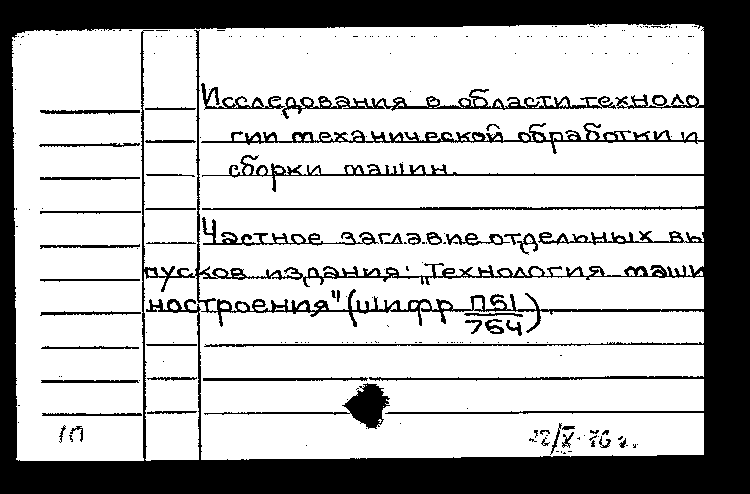 Исследования в области техноло
гии механической обработки и
сборки машин.
Частное заглавие отдельных вы
пусков издания: „Технология маши
ностроения" (шифр П61/764).
1П
22/X-76 г.